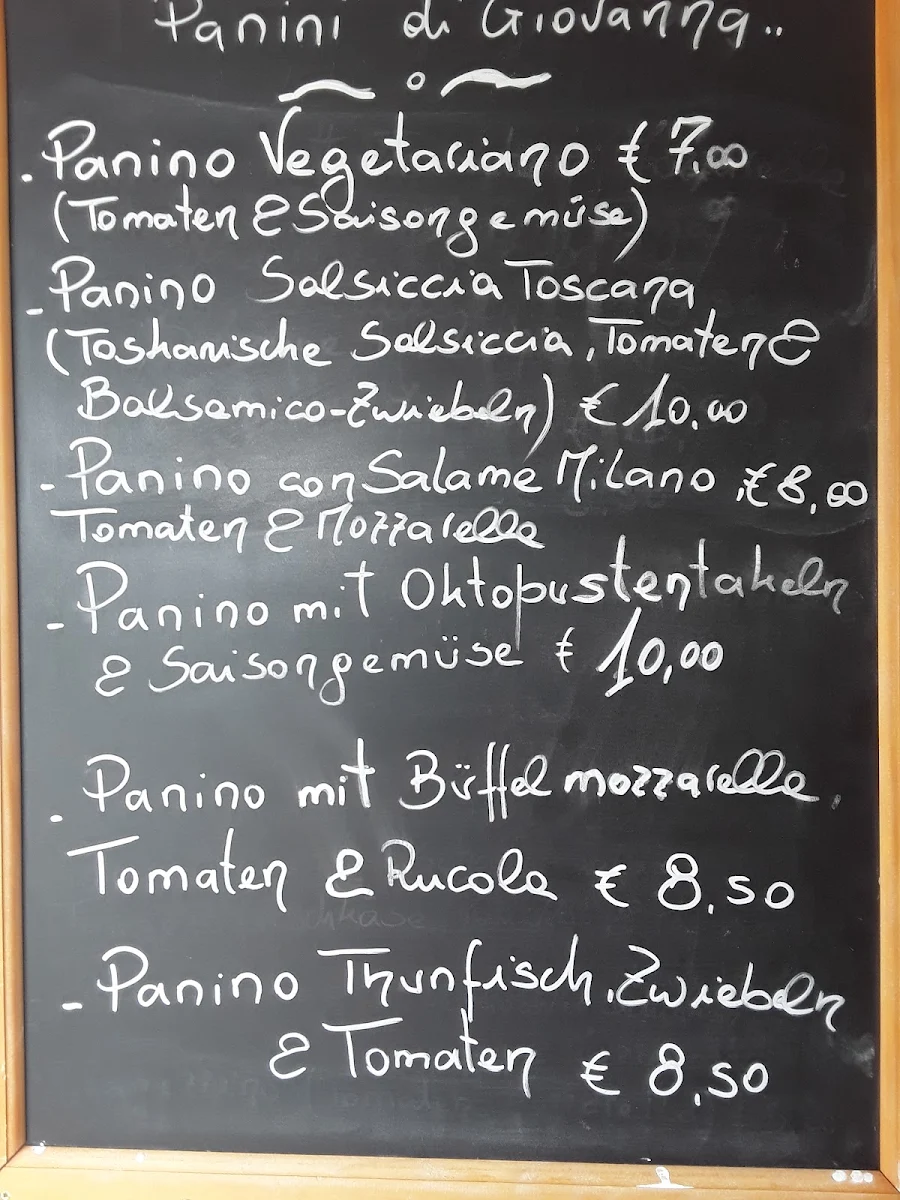 Panini di Giovanna..
. Panino Vegetariano € 7.00
(Tomaten & Saisongemüse)
- Panino Salsiccia Toscana
(Toskanische Salsiccia, Tomaten &
Balsamico-Zwiebeln) € 10.00
- Panino con Salame Milano € 8,00
Tomaten & Mozzarella
- Panino mit Oktopustentakeln
& Saisongemüse € 10,00
. Panino mit Büffelmozzarella,
Tomaten & Rucola € 8,50
- Panino Thunfisch, Zwiebeln
& Tomaten € 8,50